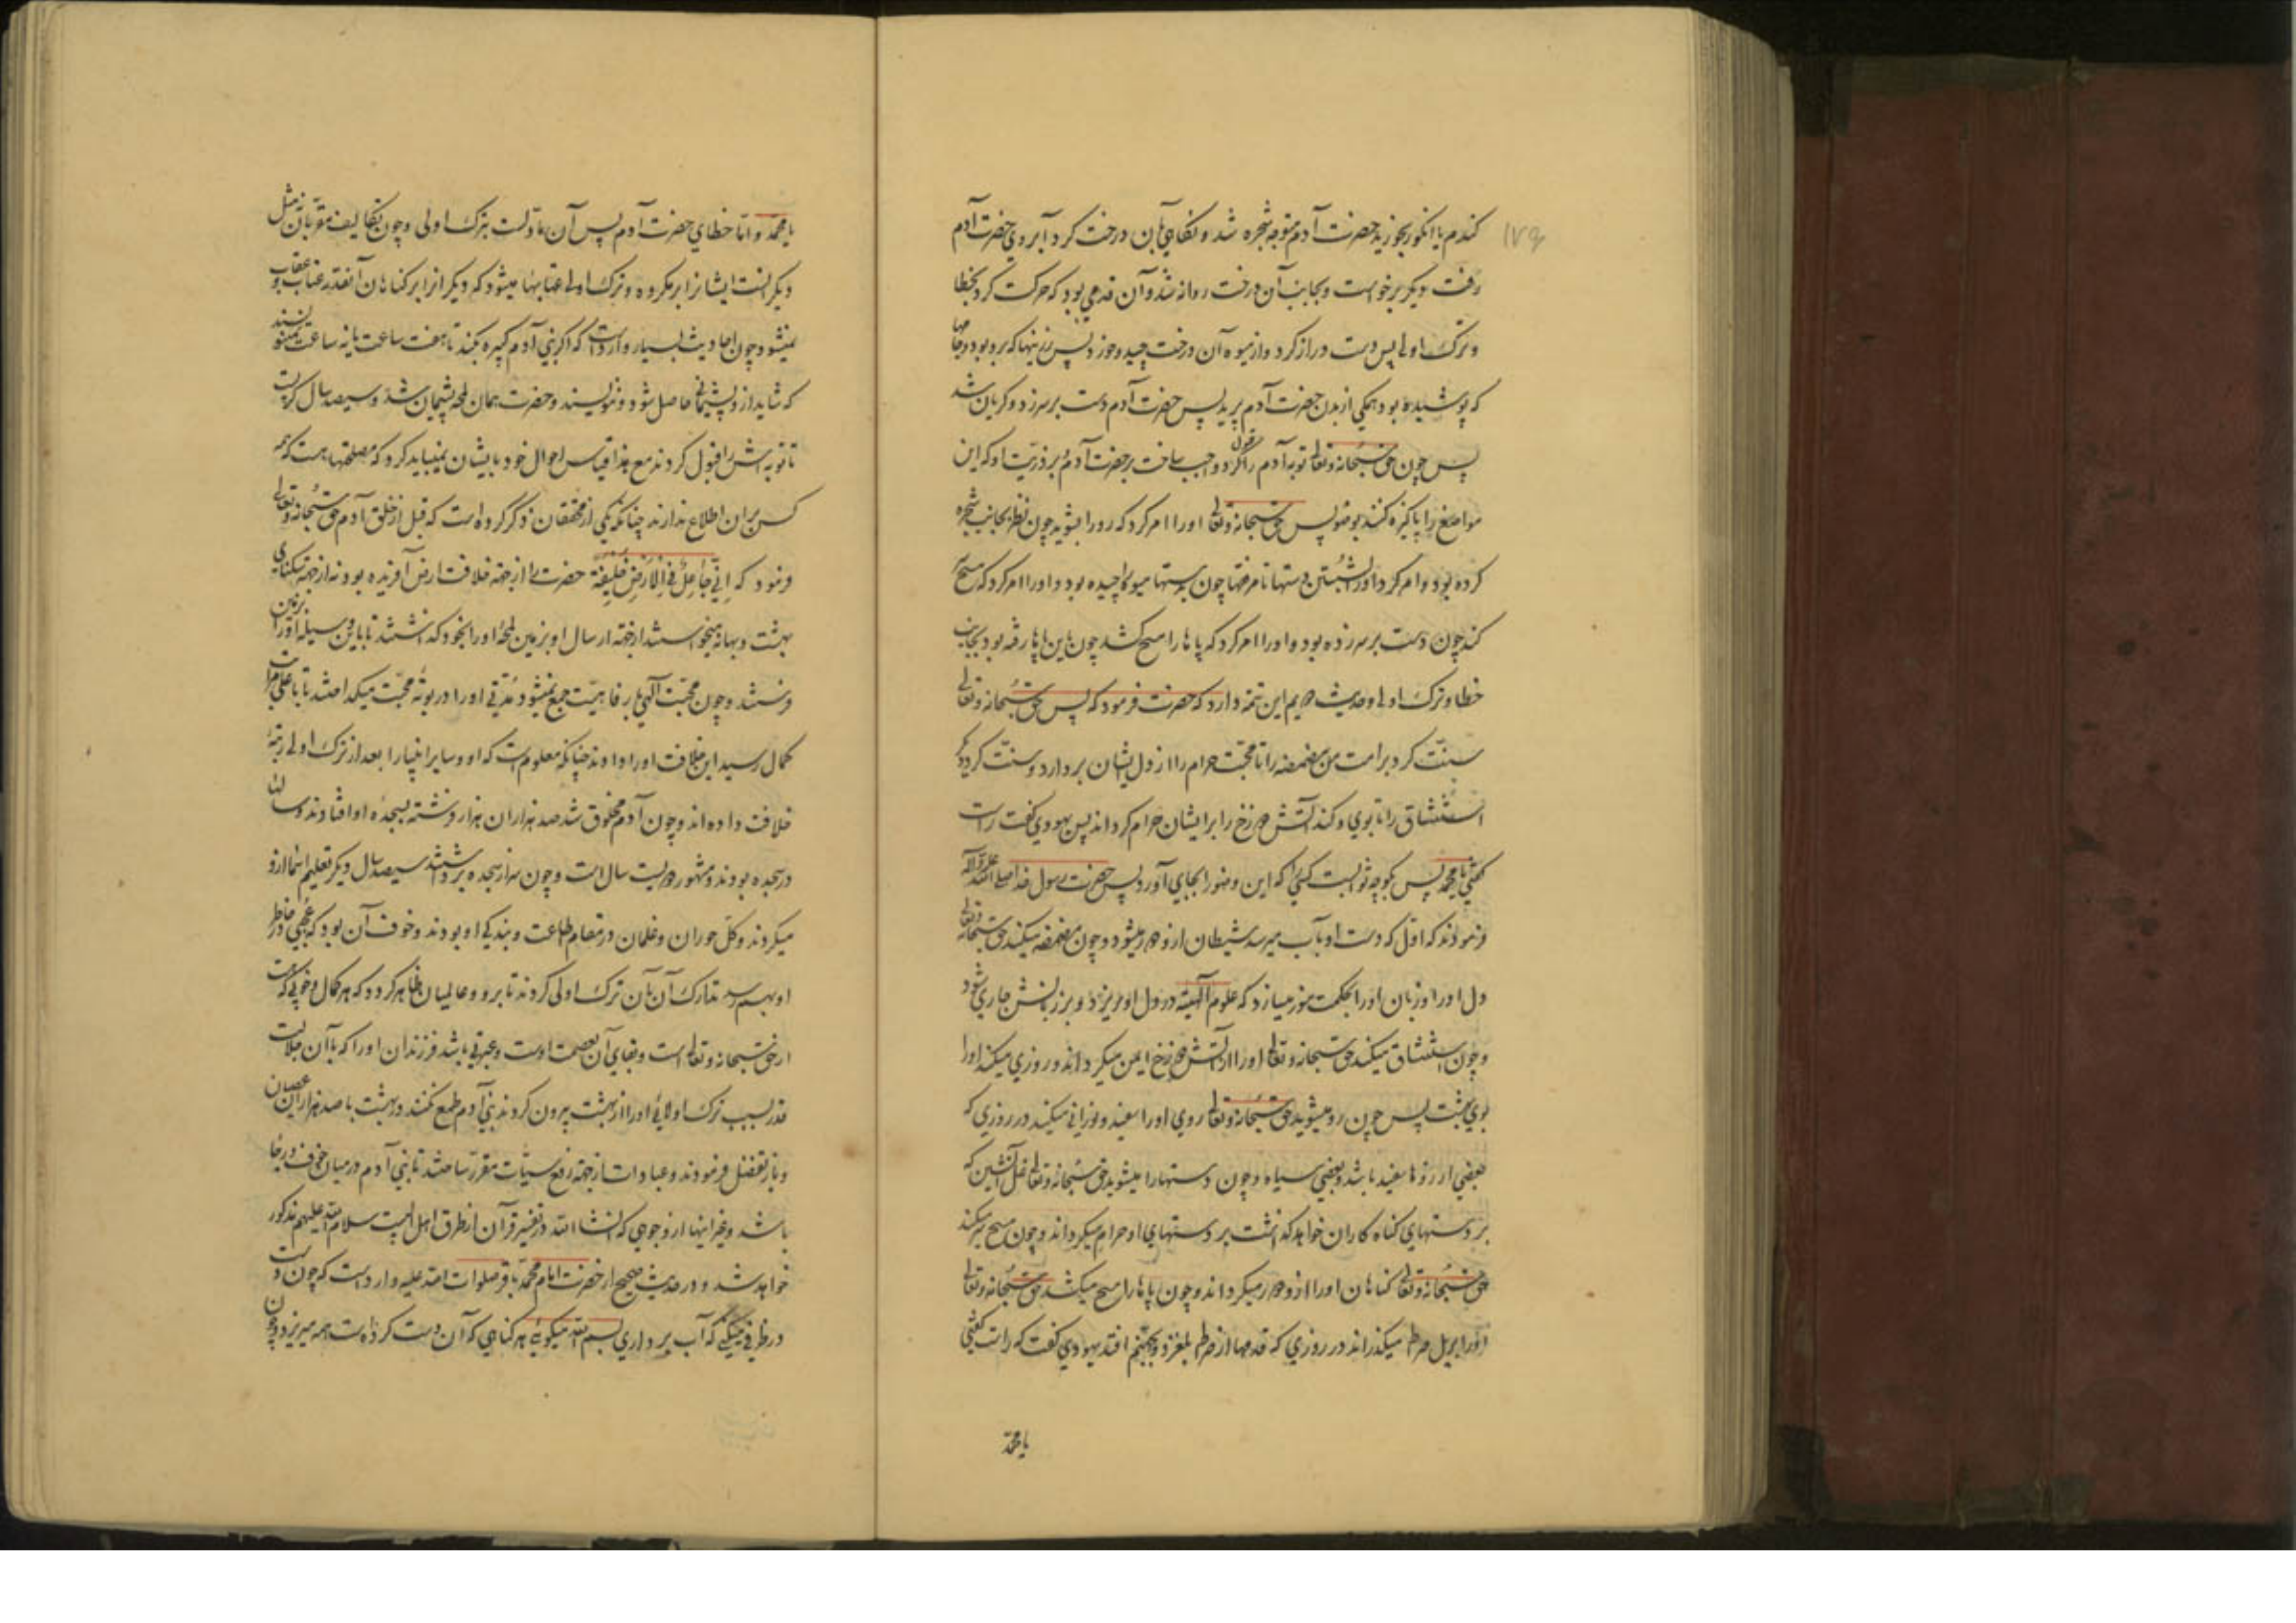 ۱۷۹
کندم یا انکور بخورند حضرت آدم متوجه شجره شد و نکاهی بآن درخت کرد آبروی حضرت آدم
رفت دیکر برخواست و بجانب آن درخت روانه شد و آن قدمی بود که حرکت کرد بخطا
و ترک اولی پس دست دراز کرد و از میوه آن درخت چید و خورد پس زینتها که برو بود و جامها
که پوشیده بود همکی از بدن حضرت آدم پرید پس حضرت آدم دست بر سر زد و کریان شد
پس چون حق سبحانه و تعالی توبه آدم را قبول کرد واجب ساخت بر حضرت آدم و بر ذریت او که این
مواضع را پاکیزه کنند بوضو پس حق سبحانه و تعالی او را امر کرد که رو را بشوید چون نظر بجانب شجره
کرده بود و امر کرد او را بشستن دستها تا مرفقها چون بدستها میوه را چیده بود و او را امر کرد که مسح سر
کند چون دست بر سر زده بود و او را امر کرد که پاها را مسح کشد چون باین پاها رفته بود بجانب
خطا و ترک اولی و حدیث دویم این تتمه دارد که حضرت فرمود که پس حق سبحانه و تعالی
سنت کرد بر امت من مضمضه را تا محبت حرام را از دل ایشان بردارد و سنت کرد دیکر
استنشاق را تا بوی و کند آتش دوزخ را بر ایشان حرام کرداند پس یهودی کفت راست
کفتی یا محمد پس بکو چه ثوابست کسی را که این وضو را بجای آورد پس حضرت رسول خدا صلی الله علیه و آله
فرمودند که اول که دست او بآب میرسد شیطان ازو دور میشود و چون مضمضه میکند حق سبحانه و تعالی
دل او را و زبان او را بحکمت منور میسازد که علوم الهیه در دل او میریزد و بر زبانش جاری میشود
و چون استنشاق میکند حق سبحانه و تعالی او را از آتش دوزخ ایمن میکرداند و روزی میکند او را
بوی بهشت پس چون رو میشوید حق سبحانه و تعالی روی او را سفید و نورانی میکند در روزی که
بعضی از روها سفید باشد و بعضی سیاه و چون دستها را میشوید حق سبحانه و تعالی غل آتشین که
بر دستهای کناه کاران خواهد کذاشت بر دستهای او حرام میکرداند و چون مسح سر میکند
حق سبحانه و تعالی کناهان او را ازو دور میکرداند و چون پاها را مسح میکشد حق سبحانه و تعالی
او را بر پل صراط میکذراند در روزی که قدمها از صراط بلغزد و بجهنم افتد یهودی کفت که راست کفتی
یا محمد
یا محمد و اما خطای حضرت آدم پس آن مأولست بترک اولی و چون تکالیف مقربان نه مثل
دیکرانست ایشانرا بر مکروه و ترک اولی عتابها میشود که دیکرانرا بر کناهان آنقدر عتاب و عقاب
نمیشود و چون احادیث بسیار وارد است که اکر بنی آدم کبیره بکند تا هفت ساعت یا نه ساعت نمینویسند
که شاید ازو پشیمانی حاصل شود و ننویسند و حضرت همان لحظه پشیمان شد و سیصد سال کریست
تا توبه اش را قبول کردند مع هذا قیاس احوال خود بایشان نمیباید کرد که مصلحتها هست که همه
کس بر آن اطلاع ندارند چنانکه یکی از محققان ذکر کرده است که قبل از خلق آدم حق سبحانه و تعالی
فرمود که اِنّی جَاعِلٌ فِی الْاَرْضِ خَلِیفَةً حضرت را از جهة خلافت ارض آفریده بود نه از جهة تنکنای
بهشت و بهانه میخواستند از جهة ارسال او بزمین لحظه او را بخود کذاشتند تا باین وسیله او را بزمین
فرستند و چون محبت الهی با رفاهیت جمع نمیشود مدتی او را در بوته محبت میکداختند تا باعلی مراتب
کمال رسید این خلافت او را دادند چنانکه معلوم است که او و سایر انبیا را بعد از ترک اولی رتبه
خلافت داده اند و چون آدم مخلوق شد صد هزاران هزار فرشته بسجده او افتادند و سالها
در سجده بودند و مشهور دویست سال است و چون سر از سجده برداشتند سیصد سال دیکر تعلیم اسما ازو
میکردند و کل حوران و غلمان در مقام طاعت و بندکی او بودند و خوف آن بود که عجبی در خاطر
او بهم رسد تدارک آن بآن ترک اولی کردند تا برو و عالمیان ظاهر کردد که هر کمال و خوبی که هست
از حق سبحانه و تعالی است و بقای آن بعصمت اوست و عبرتی باشد فرزندان او را که با آن جلالت
قدر بسبب ترک اولائی او را از بهشت بیرون کردند بنی آدم طمع نکنند در بهشت با صد هزاران عصیان
و باز تفضل فرمودند و عبادات از جهة رفع سیئات مقرر ساختند تا بنی آدم در میان خوف و رجا
باشد و غیر اینها از وجوهی که انشاء الله در تفسیر قرآن از طرق اهل البیت سلام الله علیهم مذکور
خواهد شد و در حدیث صحیح از حضرت امام محمد باقر صلوات الله علیه وارد است که چون دست
در ظرفی میکنی که آب برداری بسم الله میکوئی هر کناهی که آن دست کرده است همه میریزد و چون